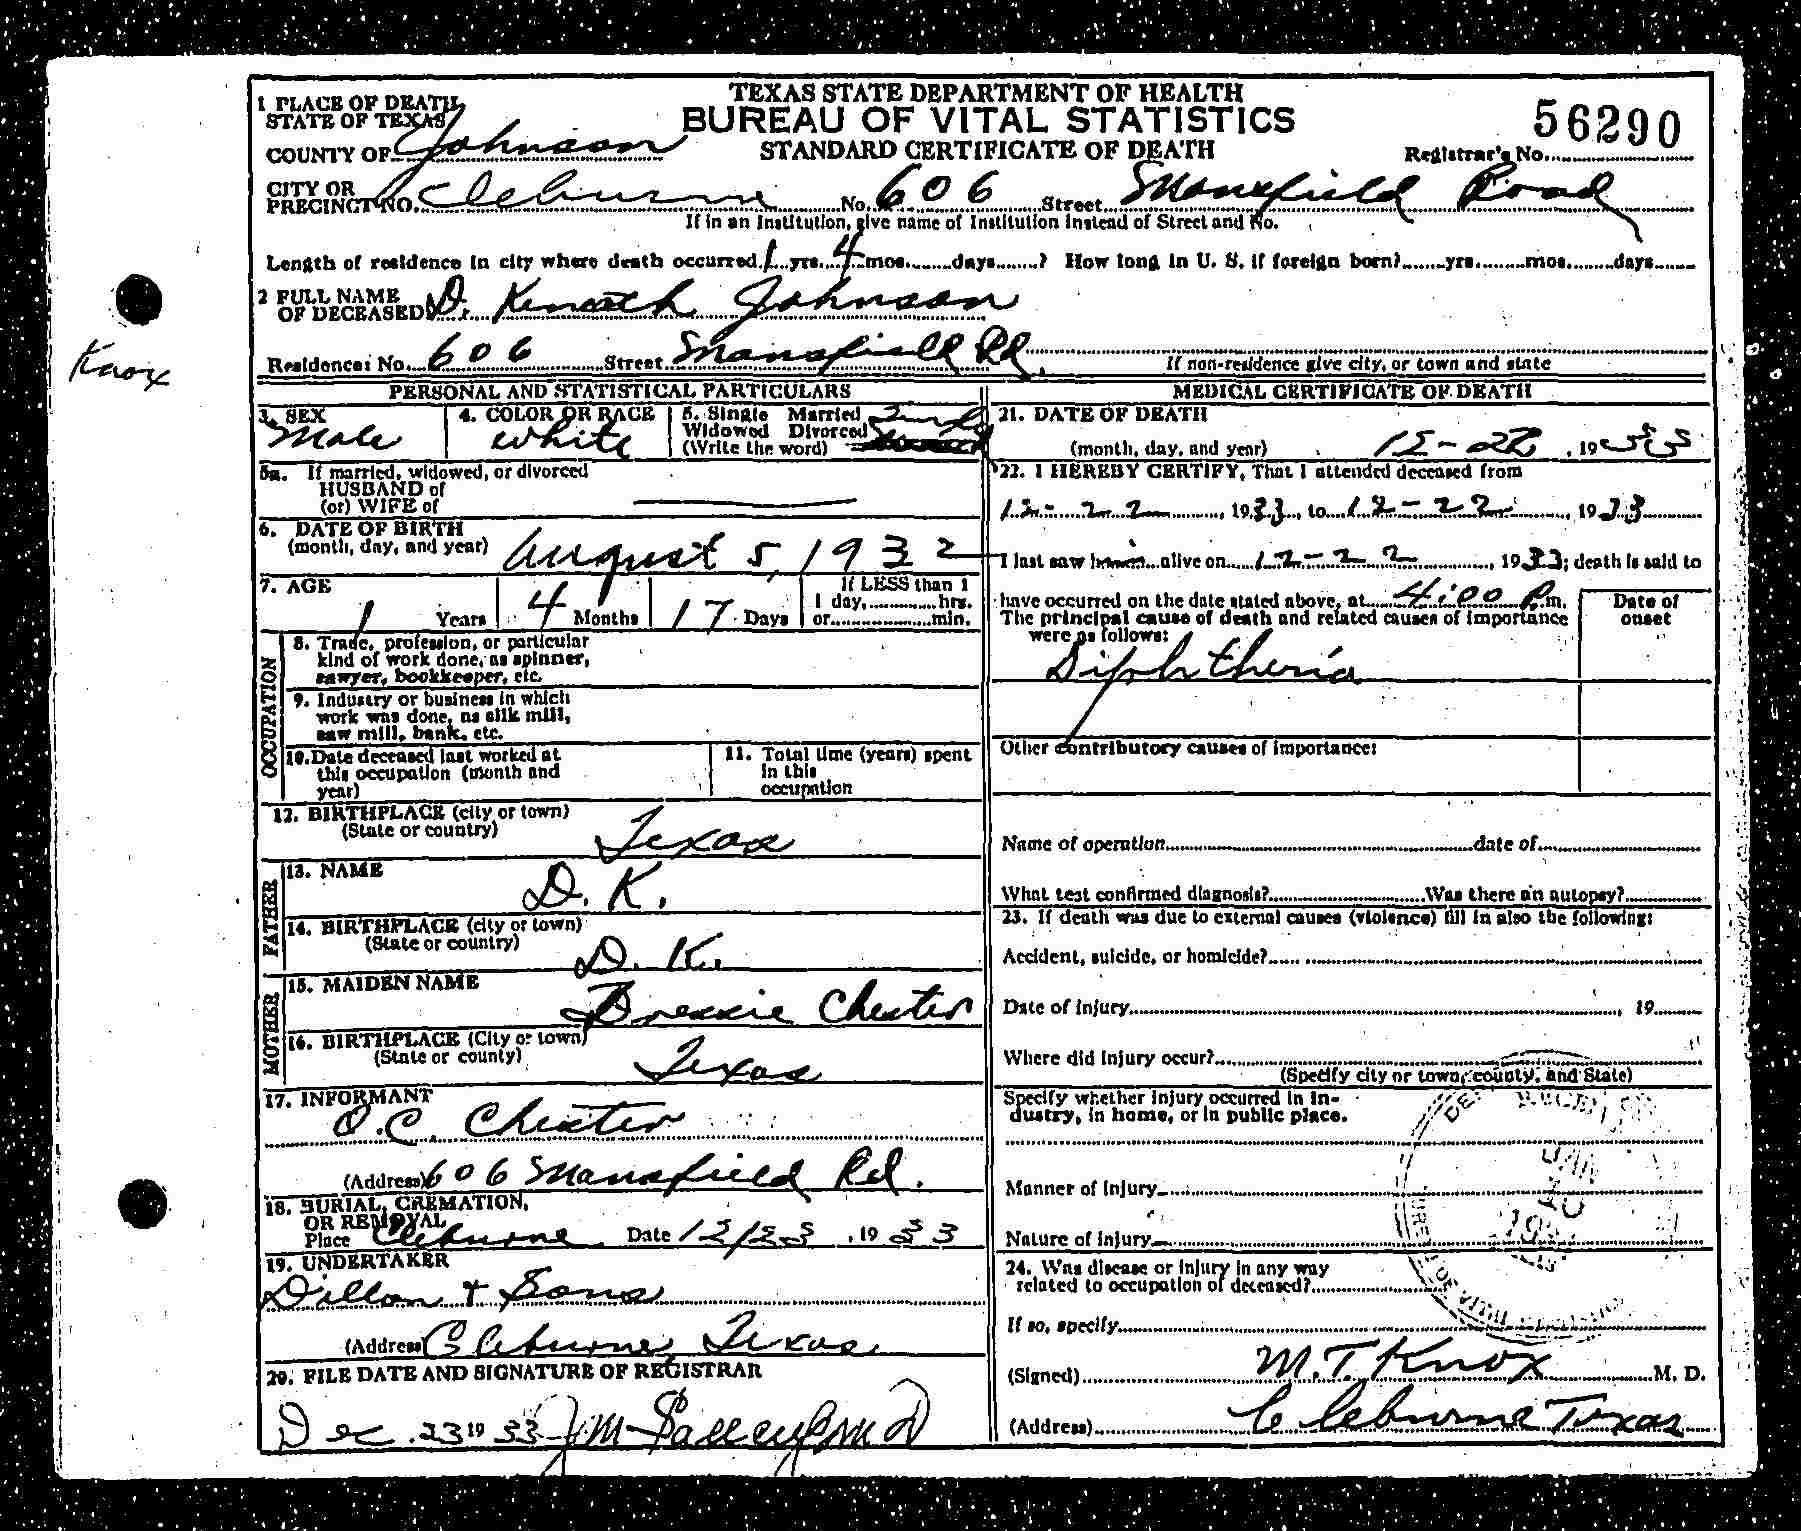 TEXAS STATE DEPARTMENT OF HEALTH
BUREAU OF VITAL STATISTICS
STANDARD CERTIFICATE OF DEATH
56290
Registrar's No.
1 PLACE OF DEATH
STATE OF TEXAS
COUNTY OF Johnson
CITY OR
PRECINCT NO. Cleburne No. 606 Street Mansfield Road
If in an Institution, give name of Institution instead of Street and No.
Length of residence in city where death occurred 1 yrs. 4 mos. days ? How long in U. S. if foreign born? yrs. mos. days
2 FULL NAME
OF DECEASED D. Kenneth Johnson
Knox
Residence: No. 606 Street Mansfield Rd.
If non-residence give city, or town and state
PERSONAL AND STATISTICAL PARTICULARS
3. SEX
Male
4. COLOR OR RACE
white
5. Single Married
Widowed Divorced
(Write the word)
Single
5a. If married, widowed, or divorced
HUSBAND of
(or) WIFE of
6. DATE OF BIRTH
(month, day, and year) August 5, 1932
7. AGE
1 Years 4 Months 17 Days
If LESS than 1
1 day, hrs.
or min.
OCCUPATION
8. Trade, profession, or particular
kind of work done, as spinner,
sawyer, bookkeeper, etc.
9. Industry or business in which
work was done, as silk mill,
saw mill, bank, etc.
10. Date deceased last worked at
this occupation (month and
year)
11. Total time (years) spent
in this
occupation
12. BIRTHPLACE (city or town)
(State or country) Texas
FATHER
13. NAME
D. K.
14. BIRTHPLACE (city or town)
(State or country) D. K.
MOTHER
15. MAIDEN NAME
Chester
16. BIRTHPLACE (City or town)
(State or county) Texas
17. INFORMANT
O.C. Chester
(Address) 606 Mansfield Rd.
18. BURIAL, CREMATION,
OR REMOVAL
Place Cleburne Date 12/23, 1933
19. UNDERTAKER
Dillon + Sons
(Address) Cleburne, Texas
20. FILE DATE AND SIGNATURE OF REGISTRAR
Dec. 23 1933
MEDICAL CERTIFICATE OF DEATH
21. DATE OF DEATH
(month, day, and year) 12-22, 1933
22. I HEREBY CERTIFY, That I attended deceased from
12-22, 1933, to 12-22, 1933
I last saw him alive on 12-22, 1933; death is said to
have occurred on the date stated above, at 4:00 P.m.
The principal cause of death and related causes of importance
were as follows:
Date of
onset
Diphtheria
Other contributory causes of importance:
Name of operation date of
What test confirmed diagnosis? Was there an autopsy?
23. If death was due to external causes (violence) fill in also the following:
Accident, suicide, or homicide?
Date of injury , 19
Where did injury occur?
(Specify city or town, county, and State)
Specify whether injury occurred in in-
dustry, in home, or in public place.
Manner of injury
Nature of injury
24. Was disease or injury in any way
related to occupation of deceased?
If so, specify
(Signed) M.T. Knox M. D.
(Address) Cleburne Texas